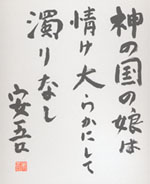 神の国の娘は
情け大らかにして
濁りなし
安吾